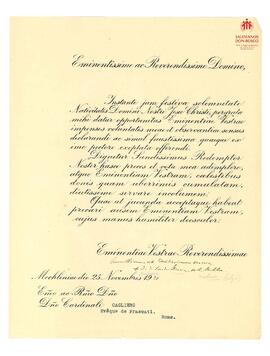 SALESIANOS
DON BOSCO
Eminentissime ac Reverendissime Domine,
Instante jam festiva solemnitate
Nativitatis Domini Nostri Jesu Christi, pergrata
mihi datur opportunitas Eminentiæ Vestræ
impensos voluntatis meæ et observantiæ sensus
declarandi ac simul faustissima quæque ex
imo pectore exoptata offerendi.
Dignetur Sanctissimus Redemptor
Noster hasce preces et vota mea implere,
atque Eminentiam Vestram, cælestibus
donis quam uberrime cumulatam,
diutissime servare incolumem.
Quæ ut jucunda acceptaque habeat
precari ausim Eminentiam Vestram,
cujus manus humiliter deosculor.
Eminentiæ Vestræ Reverendissimæ
Mechliniæ die 25 Novembris
Emo ac Rmo Dno
Dno Cardinali CAGLIERO
Evêque de Frascati.
Rome.